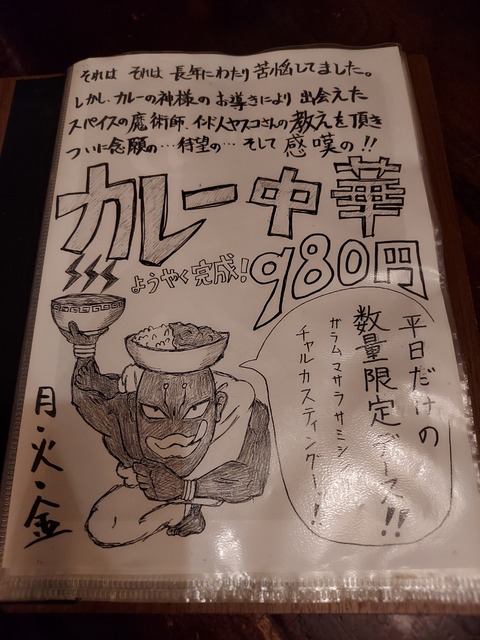 それは それは 長年にわたり苦悩してました。
しかし、カレーの神様のお導きにより出会えた
スパイスの魔術師、インド人ヤスコさんの教えを頂き
ついに念願の…待望の…そして感嘆の!!
カレー中華
ようやく完成!
980円
平日だけの
数量限定デース!!
ガラムマサラサミシン
チャルカスティングー!!
月・火・金